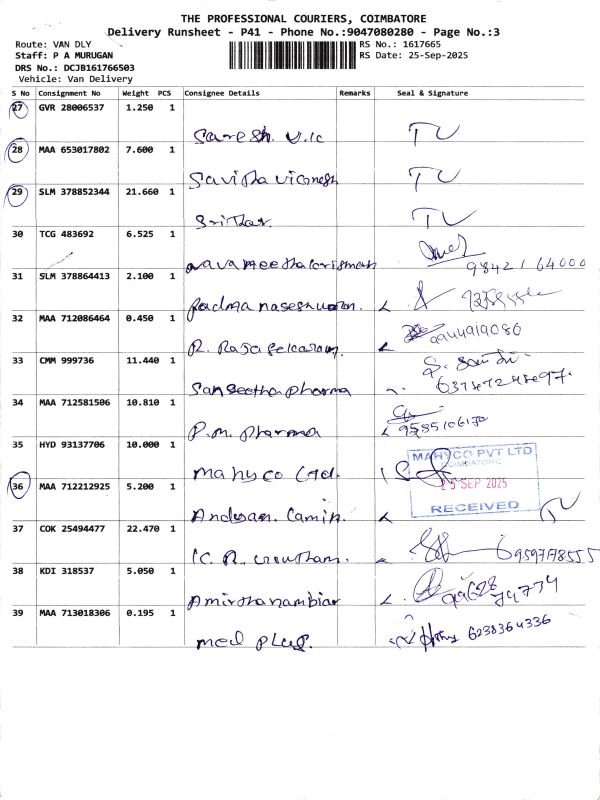 THE PROFESSIONAL COURIERS, COIMBATORE
Delivery Runsheet - P41 - Phone No.:9047080280 - Page No.:3
Route: VAN DLY RS No.: 1617665
Staff: P A MURUGAN RS Date: 25-Sep-2025
DRS No.: DCJB161766503
Vehicle: Van Delivery
S No Consignment No Weight PCS Consignee Details Remarks Seal & Signature
27 GVR 28006537 1.250 1
Suresh. V.K TU
28 MAA 653017802 7.600 1
Savitha vignesh TU
29 SLM 378852344 21.660 1
Srithar. TU
30 TCG 483692 6.525 1
98421 64000
31 SLM 378864413 2.100 1
Padma
32 MAA 712086464 0.450 1
R. Raja 9944919080
33 CMM 999736 11.440 1
Sangeetha pharma
34 MAA 712581506 10.810 1
P.M. Pharma
35 HYD 93137706 10.000 1
Mahyco Ltd.
MAHYCO PVT LTD
COIMBATORE
25 SEP 2025
RECEIVED
36 MAA 712212925 5.200 1
TU
37 COK 25494477 22.470 1
K. R.
38 KDI 318537 5.050 1
Amirtha nambiar
39 MAA 713018306 0.195 1
med plus. 6238364336